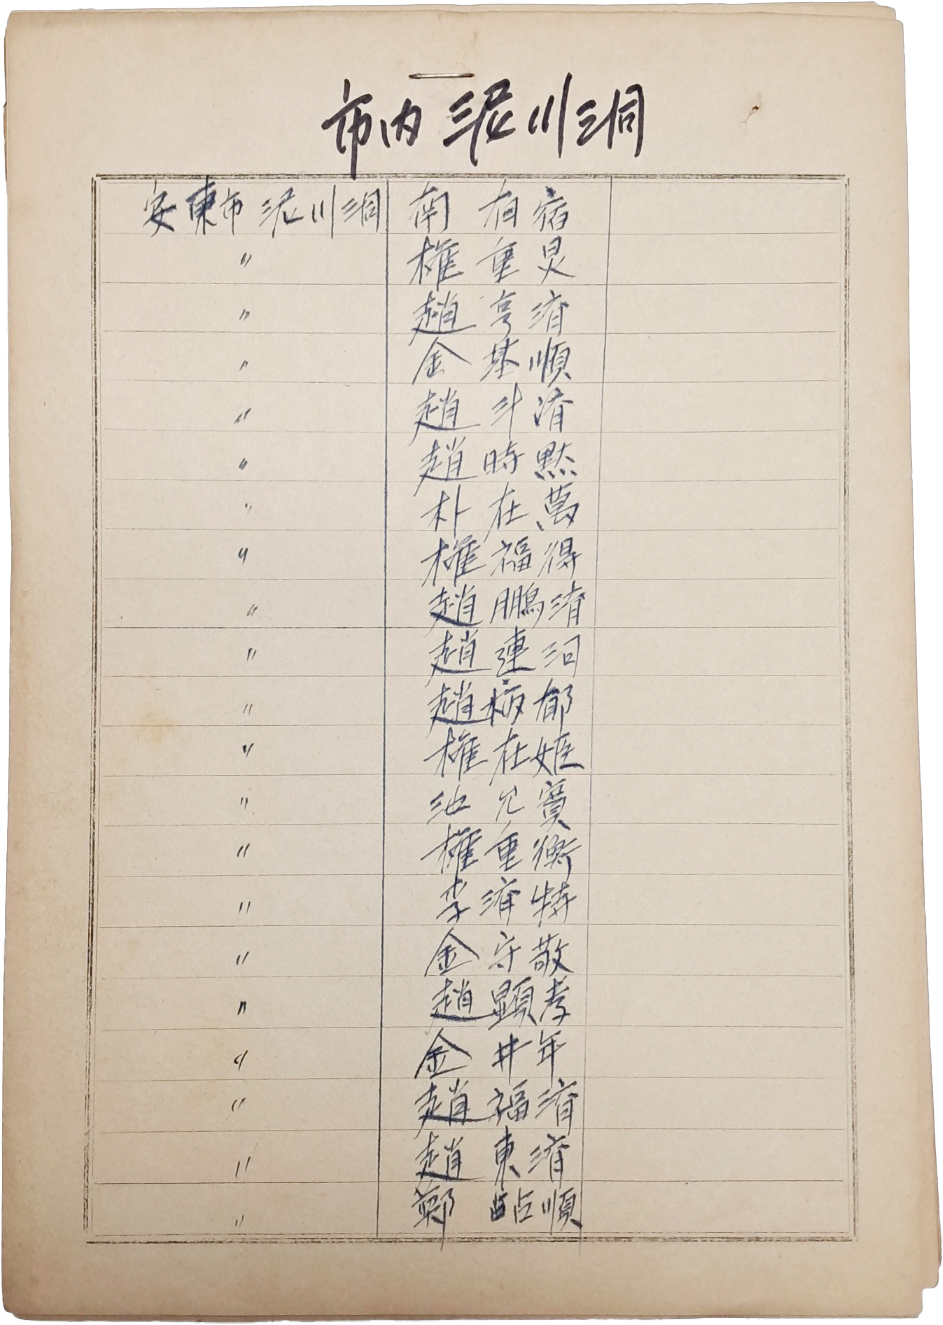 市内 泥川洞
安東市 泥川洞 南 有宿
〃 權重炅
〃 趙亨済
〃 金基順
〃 趙斗済
〃 趙時黙
〃 朴在萬
〃 權福得
〃 趙鵬済
〃 趙連
〃 趙 郁
〃 權在姬
〃 池允寶
〃 權重衡
〃 李済特
〃 金守敬
〃 趙顯孝
〃 金井年
〃 趙福済
〃 趙東済
〃 鄭點順